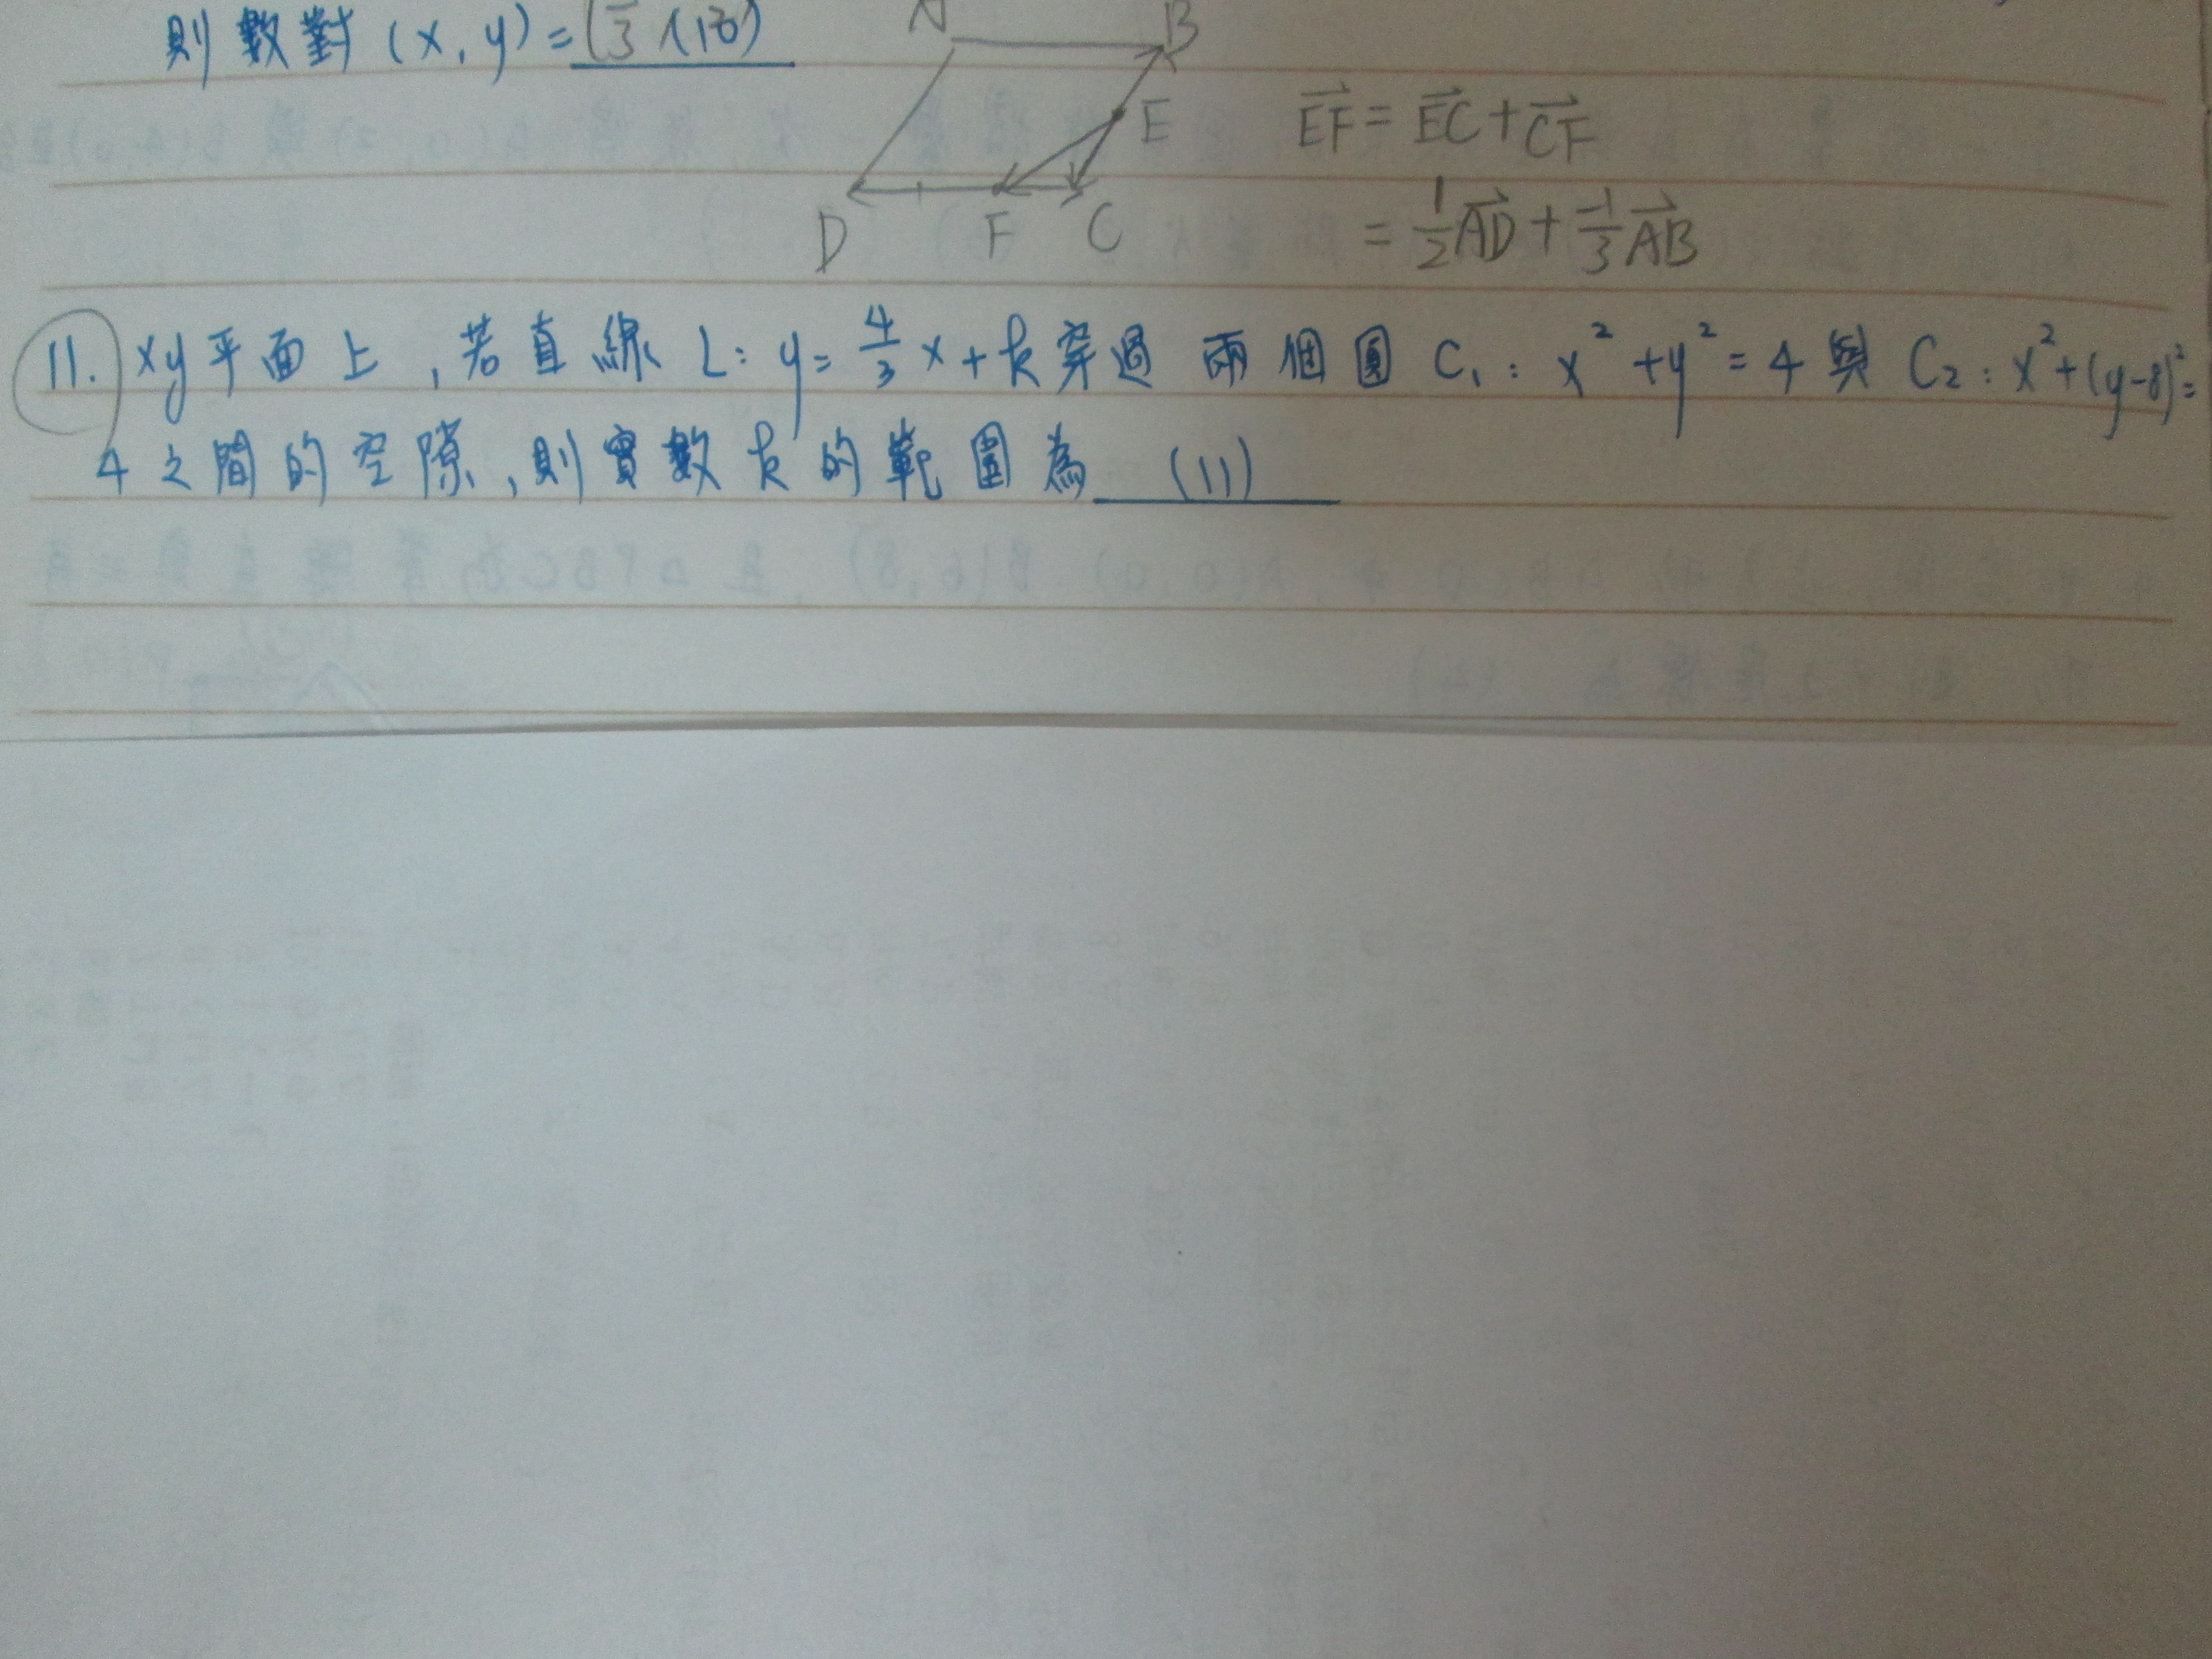 則數對(x,y)=
A B
E
D F C
EF = EC + CF
= 1/2 AD + -1/3 AB
11. xy平面上,若直線 L: y= 4/3 x + k 穿過 兩個圓 C₁: x²+y²=4 與 C₂: x²+(y-8)²=
4 之間的空隙,則實數k的範圍為 (11)